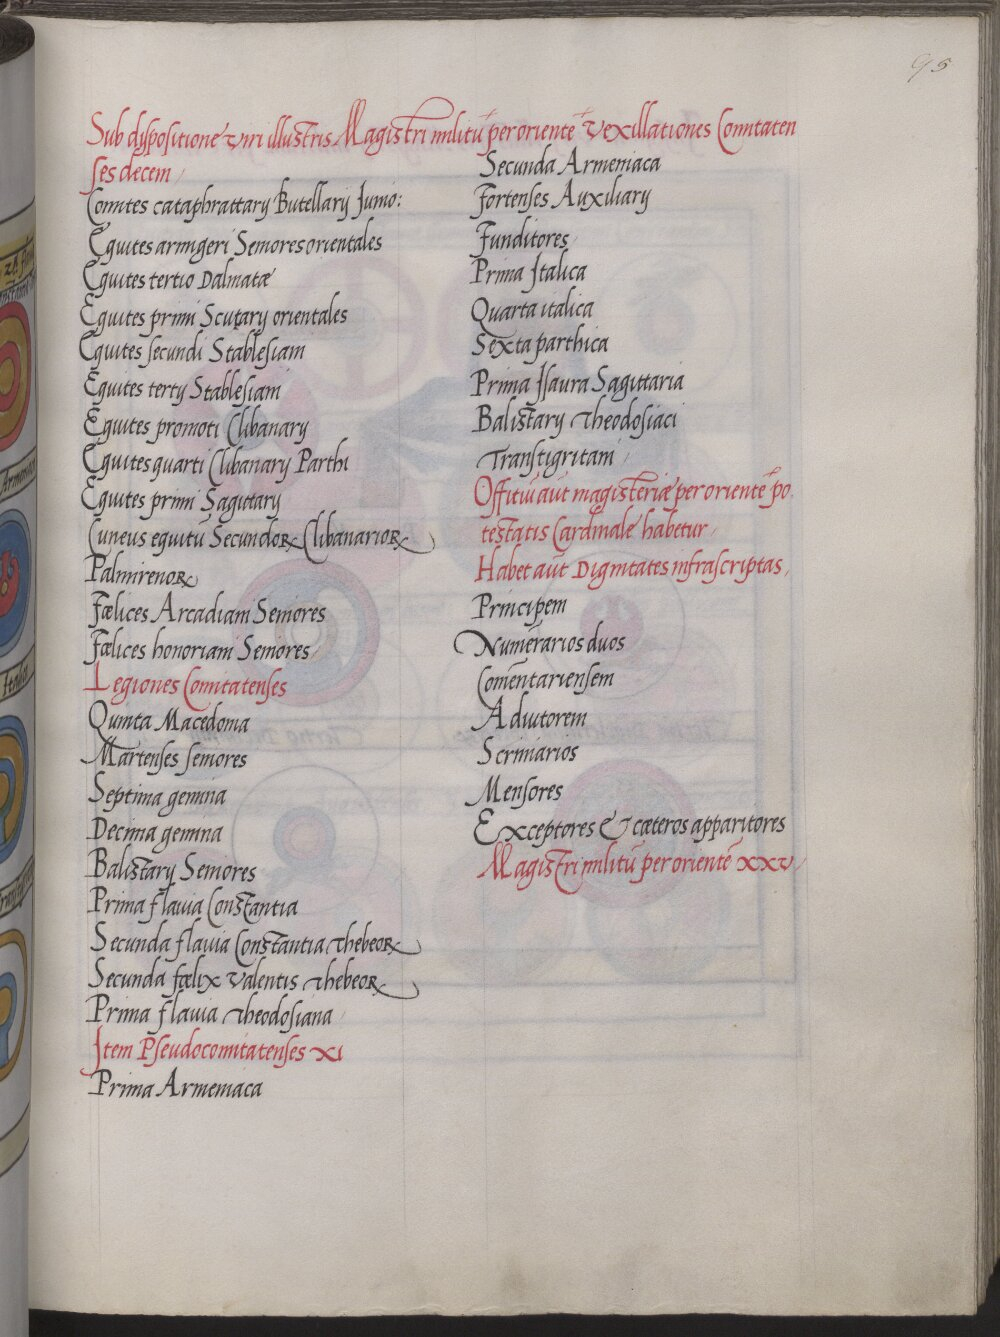 95
Sub dispositione viri illustris Magistri militũ per orientẽ Vexillationes Comitaten
ses decem
Comites cataphrattarij Butellarij Junio:
Equites armigeri Seniores orientales
Equites tertio Dalmatæ
Equites primi Scutarij orientales
Equites secundi Stablesiani
Equites tertij Stablesiani
Equites promoti Clibanarij
Equites quarti Clibanarij Parthi
Equites primi Sagitarij
Cuneus equitũ Secundoꝝ Clibanarioꝝ
Palmirenoꝝ
Fælices Arcadiani Seniores
Fælices honoriani Seniores
Legiones Comitatenses
Quinta Macedonia
Martenses seniores
Septima gemina
Decima gemina
Balistarij Seniores
Prima flavia Constantia
Secunda flavia Constantia Thebeoꝝ
Secunda fœlix valentis Thebeoꝝ
Prima flavia Theodosiana
Item Pseudocomitatenses XI
Prima Armeniaca
Secunda Armeniaca
Fortenses Auxiliarij
Funditores
Prima Italica
Quarta italica
Sexta parthica
Prima Isaura Sagittaria
Balistarij Theodosiaci
Transtigritani
Offitiũ aũt magisteriæ per orientẽ po
testatis Cardinale habetur
Habet aũt Dignitates infrascriptas
Principem
Numerarios duos
Comẽntariensem
Adiutorem
Scriniarios
Mensores
Exceptores & cæteros apparitores
Magistri militũ per orientẽ XXV